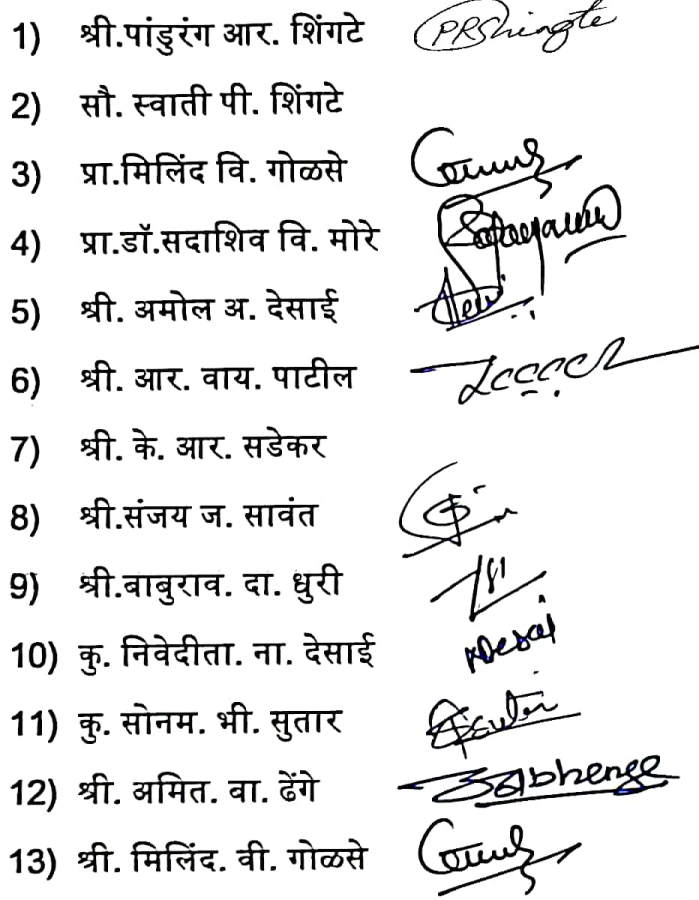 1) श्री.पांडुरंग आर. शिंगटे PRShingte
2) सौ. स्वाती पी. शिंगटे
3) प्रा.मिलिंद वि. गोळसे
4) प्रा.डॉ.सदाशिव वि. मोरे
5) श्री. अमोल अ. देसाई
6) श्री. आर. वाय. पाटील
7) श्री. के. आर. सडेकर
8) श्री.संजय ज. सावंत
9) श्री.बाबुराव. दा. धुरी
10) कु. निवेदीता. ना. देसाई NDesai
11) कु. सोनम. भी. सुतार
12) श्री. अमित. वा. ढेंगे
13) श्री. मिलिंद. वी. गोळसे